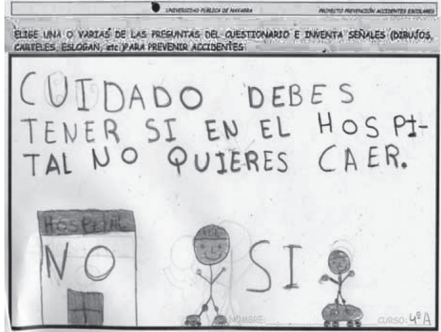 UNIVERSIDAD PÚBLICA DE NAVARRA PROYECTO PREVENCIÓN ACCIDENTES ESCOLARES
ELIGE UNA O VARIAS DE LAS PREGUNTAS DEL CUESTIONARIO E INVENTA SEÑALES (DIBUJOS,
CARTELES, ESLOGAN, etc.)PARA PREVENIR ACCIDENTES
CUIDADO DEBES
TENER SI EN EL HOSPI-
TAL NO QUIERES CAER.
HOSPITAL
NO SI
NOMBRE: CURSO: 4ºA